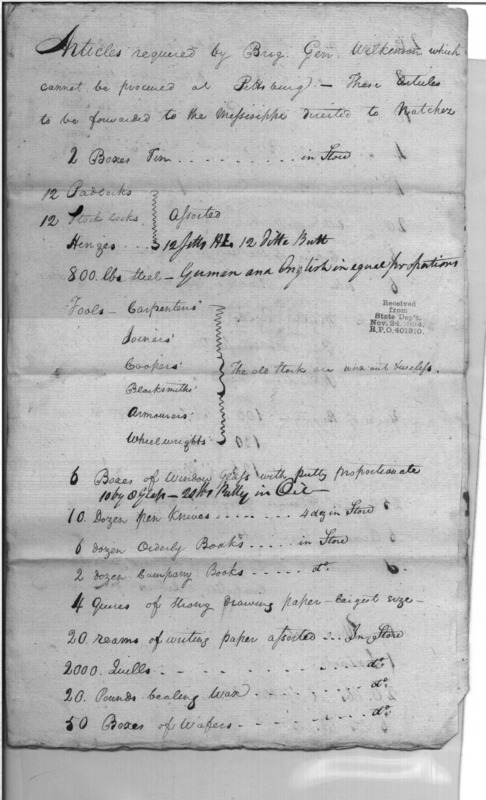 Articles required by Brig. Gen. Wilkinson which
cannot be procured at Pittsburg. — These articles
to be forwarded to the Missisippi directed to Natchez
2 Boxes Tin . . . . . . . . . . in Store
12 Padlocks
12 Stock Locks } assorted
Henges . . . 12 setts HL 12 Ditto Butt
800. lbs steel — German and English in equal proportions
Tools — Carpenters'
Joiners'
Coopers'
Blacksmiths'
Armourers'
Wheelwrights'
The old Stock are worn out & useless.
Received
from
State Dep't.
Nov. 24, 1894.
R.P.O. 401310.
6 Boxes of Window Glass with putty proportionate
10 by 8 Glass — Putty in Oil —
10. Dozen pen Knives . . . . . 4 doz in Store
6 dozen Orderly Books . . . . . in Store
2 dozen Company Books . . . . . do.
4 Quires of strong drawing paper — largest size —
20. reams of writing paper assorted . . . In Store
2000. Quills . . . . . . . . . . do.
20. Pounds Sealing Wax . . . . . . . do.
50 Boxes of Wafers . . . . . . . . do.